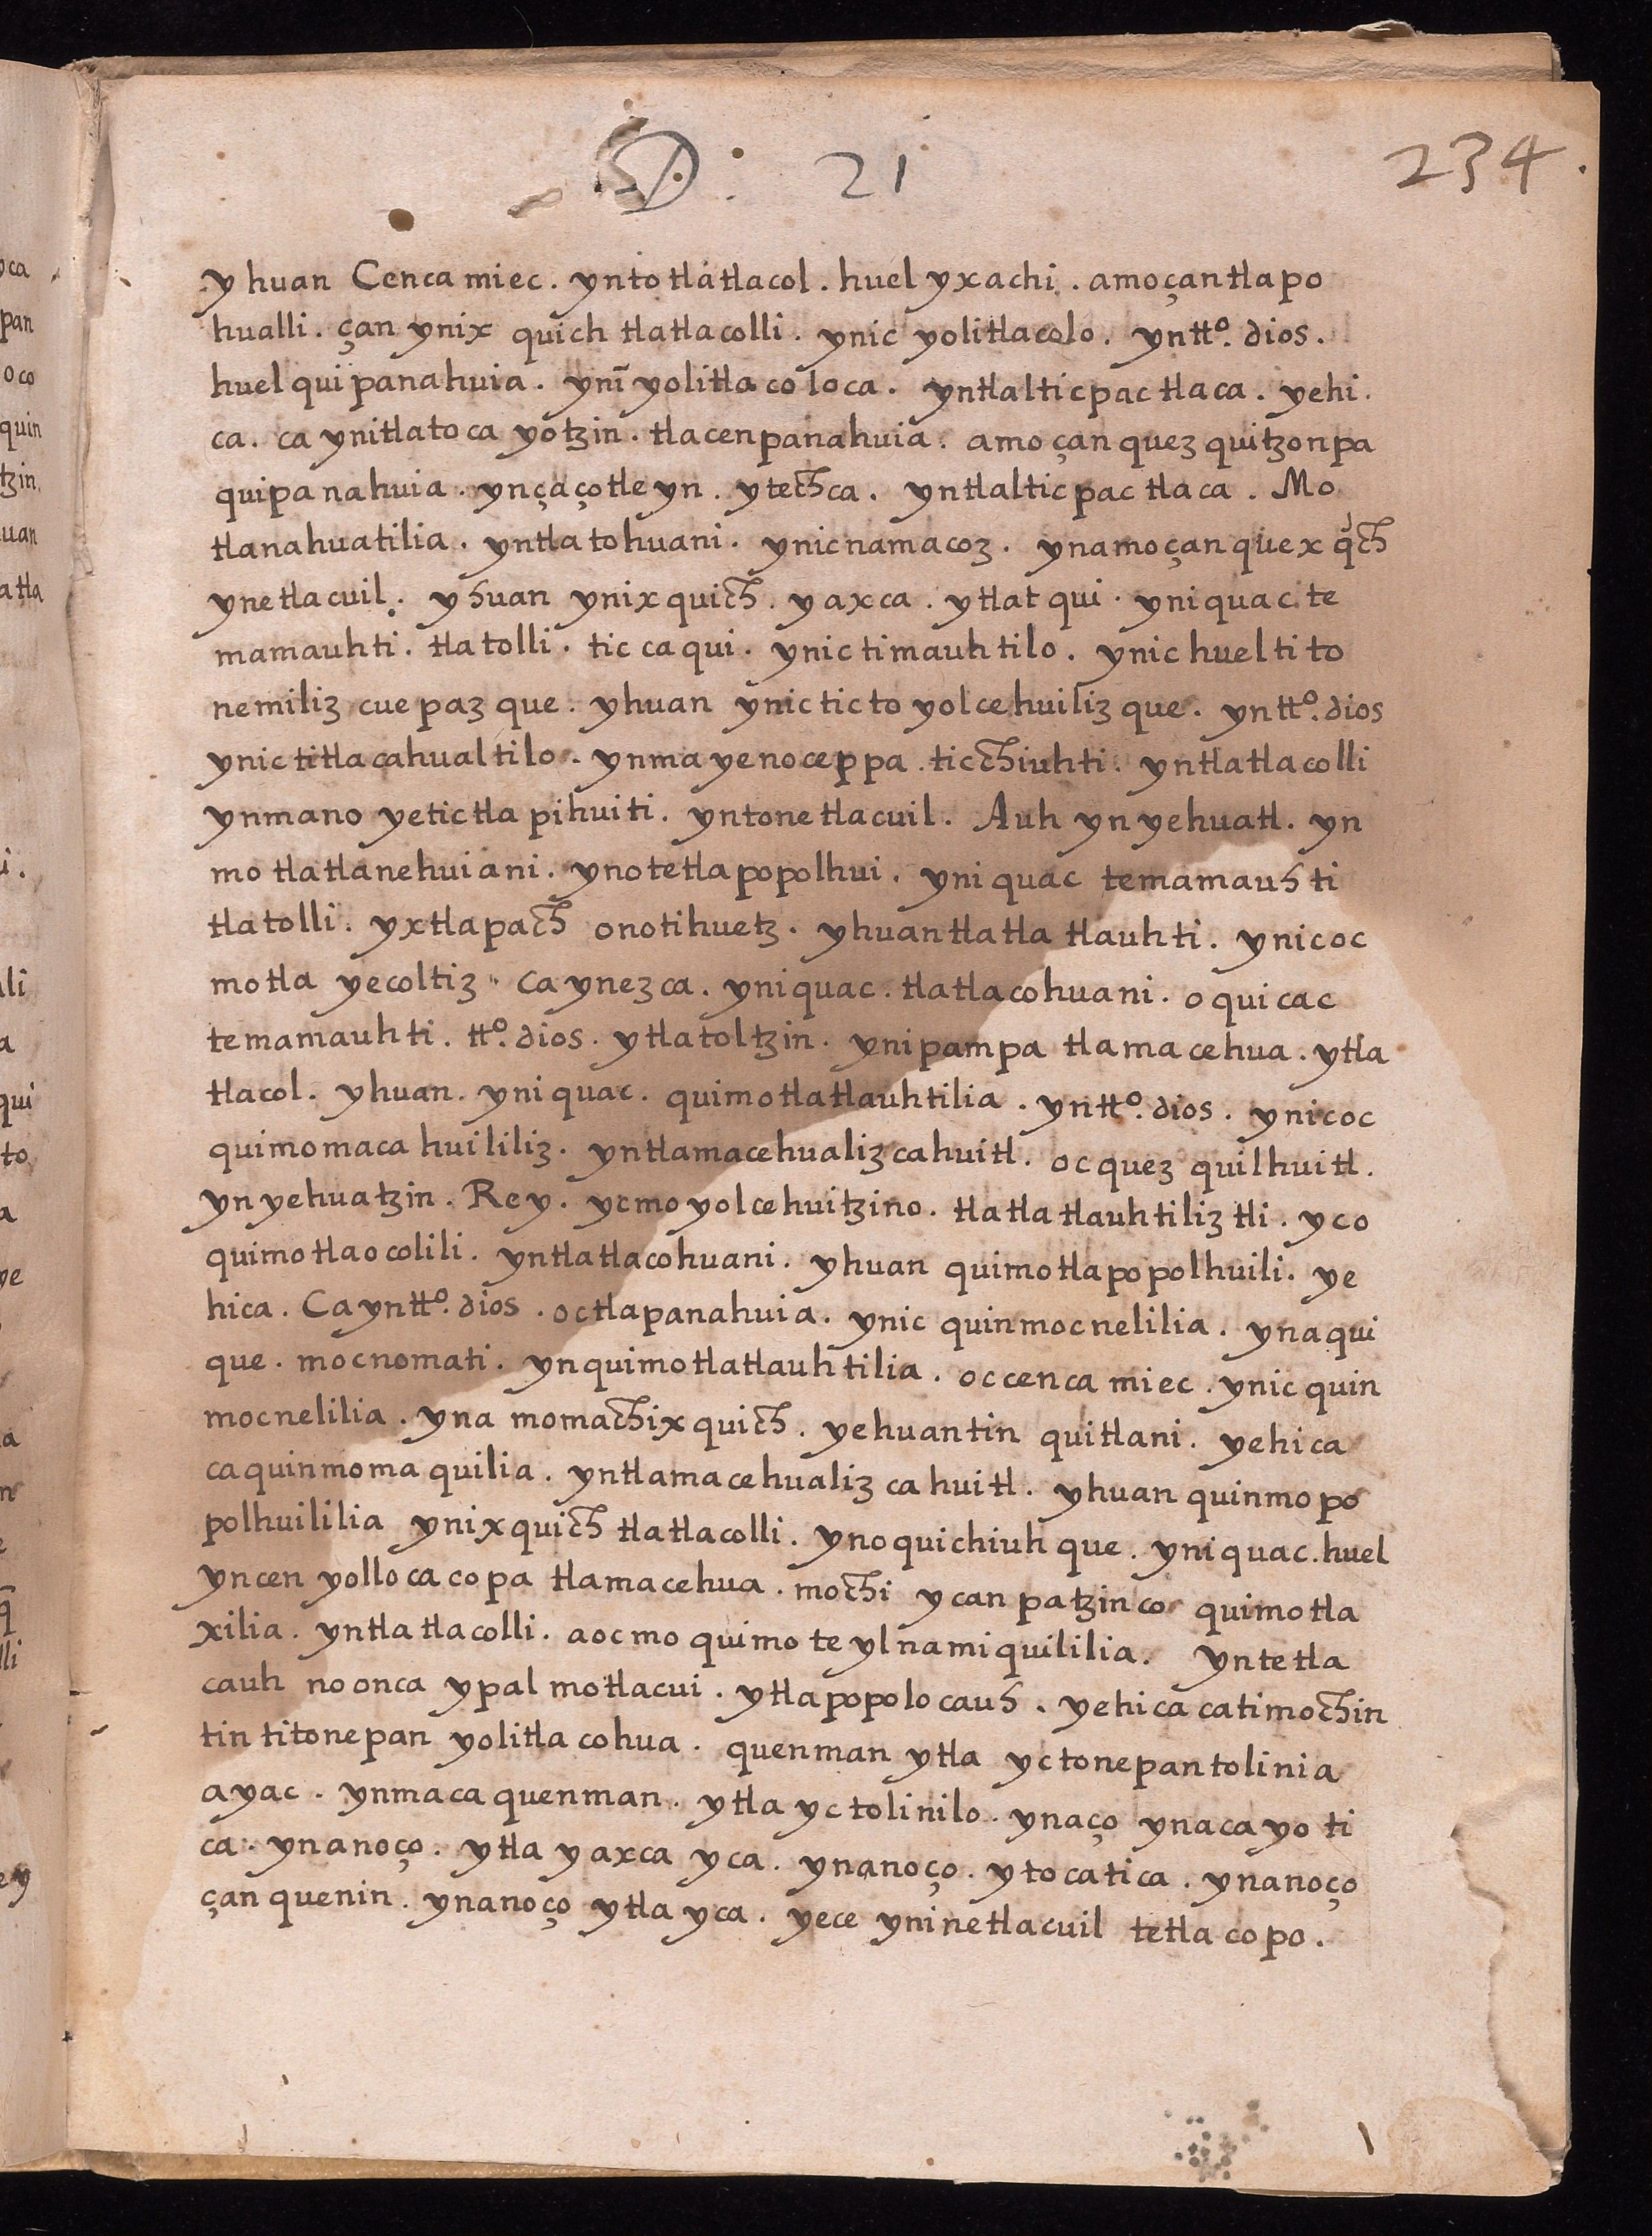 D. 21
234.
y huan Cenca miec. ynto tlatlacol. huel yxachi. amoçan tlapo
hualli. çan ynix quich tlatlacolli. ynic yolitlacolo. yntt͞º. dios.
huel quipanahuia. ynī yolitla coloca. yntlalticpac tlaca. yehi.
ca. ca ynitlatoca yotzin. tlacenpanahuia. amo çan quez quitzonpa
quipanahuia. ynçaçotle yn. ytechca. yntlalticpac tlaca. Mo
tlanahuatilia. yntlatohuani. ynicnamacoz. ynamoçanquex qͥch
ynetlacuil. yhuan ynixquich. yaxca. ytlatqui. yniquac. te
mamauhti. tlatolli. ticcaqui. ynic timauhtilo. ynic huel ti to
nemiliz cuepaz que. yhuan ynic ticto yolcehuiliz que. yntt͞º. dios
ynic titlacahualtilo. ynma yenoceppa. ticchiuhti. yntlatlacolli
ynmano yetictlapihuiti. yntonetlacuil. Auh ynyehuatl. yn
motlatlanehuiani. ynotetlapopolhui. yniquac temamauhti
tlatolli. yxtlapach onotihuetz. yhuan tlatlatlauhti. ynicoc
motla yecoltiz. ca ynezca. yniquac. tlatlacohuani. oquicac
temamauhti. tt͞º. dios. ytlatoltzin. ynipampa tlamacehua. ytla
tlacol. yhuan. yniquac. quimotlatlauhtilia. yntt͞º. dios. ynicoc
quimomaca huililiz. yntlamacehualizcahuitl. oc quez quilhuitl.
ynyehuatzin. Rey. ycmo yolcehuitzino. tlatlatlauhtiliztli. yco
quimotlaocolili. yntlatlacohuani. yhuan quimotlapopolhuili. ye
hica. Ca yntt͞º. dios. octlapanahuia. ynic quinmocnelilia. ynaqui
que. mocnomati. ynquimotlatlauhtilia. occenca miec. ynic quin
mocnelilia. yna momachixquich. yehuantin quitlani. yehica
caquinmomaquilia. yntlamacehualiz cahuitl. yhuan quinmopo
polhuililia ynixquich tlatlacolli. ynoquichiuhque. yniquac. huel
yncen yollocacopa tlamacehua. mochi ycanpatzinco quimotla
xilia. yntlatlacolli. aocmo quimoteylnamiquililia. Yntetla
cauh no onca ypal motlacui. ytlapopolocauh. yehica catimochin
tin titonepan yolitlacohua. quenman ytla yctonepantolinia
ayac. ynmaca quenman. ytla yc tolinilo. ynaço ynacayoti
ca. ynanoço. ytla yaxca yca. ynanoço. ytocatica. ynanoço
çan quenin. ynanoço ytla yca. yece yninetlacuil tetlacopo.